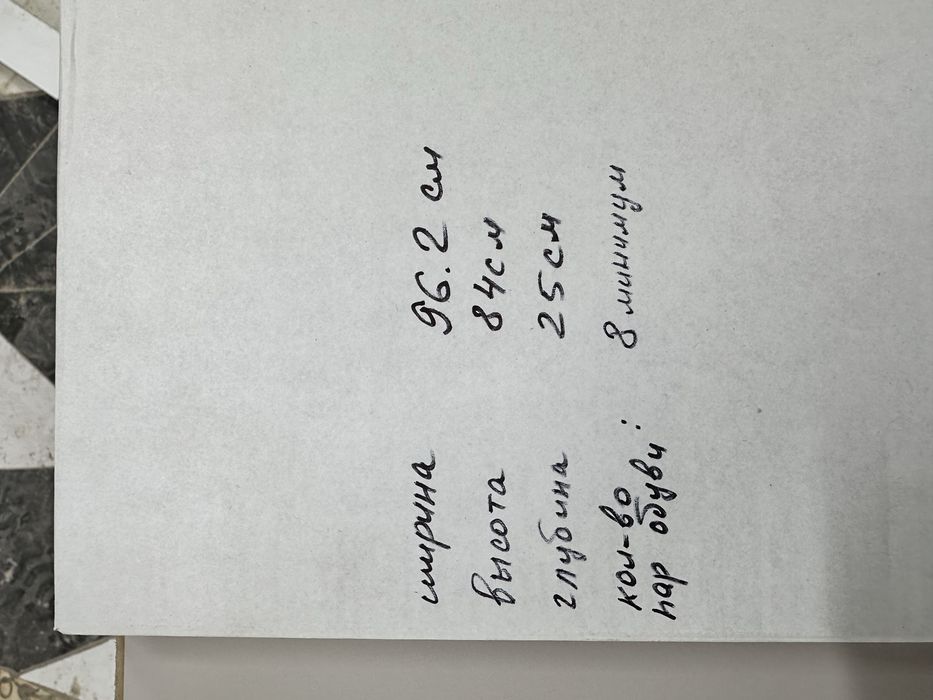 ширина 96.2 см
высота 84см
глубина 25см
кол-во
пар обуви: 8 минимум